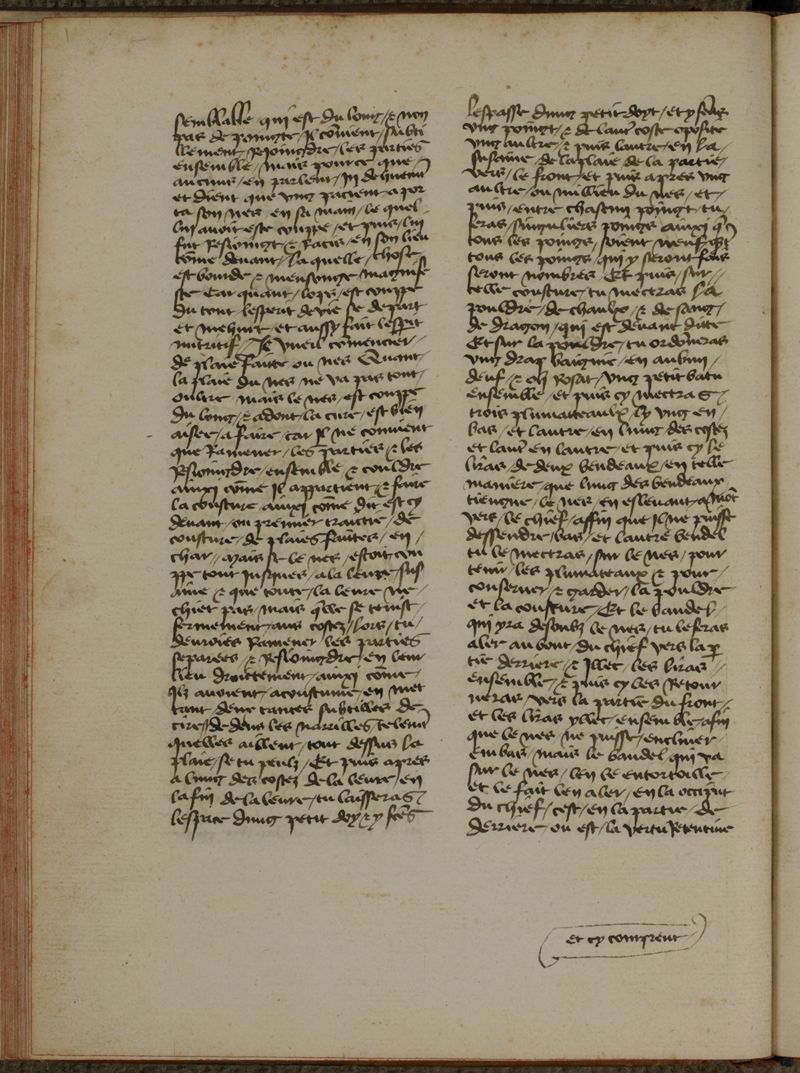 semblable qui est du long / & non
pas de poincte / Il convient / subti
llement / Reioindre / les parties
ensemble / mais pource que /
aucuns / en parlent / Indehuem
et dient que ung pacient apor
ta son nes / en sa main / le quel
luy avoit este couppe / et puis / luy
fut Reioingt & Remis / en son lieu
come devant / la quelle / chose
est bourde & mensonge manifes
ste Car quant / le nes / est couppe
du tout lesperit de vie se depart
et meurt / et aussy fait lesperit
nutritif / Je vueil comencier
de plaie faite ou nes Quant
la plaie du nes ne va pas tout /
oultre / mais le nes / est couppe
du long / & adont / la cure / est bien
aisee / a faire / car Il ne convient
que Ramener / les parties & les
Reioindre / ensemble & couldre
ainsi come Il appartient & faire
la cousture ainsi come dit est cy
devant / ou premier traictie / de
cousture / de plaies faictes / en /
char // Mais se le nes / estoit cou
ppe tout jusques / a la leure / sus
& que toute / la leure ne
chiet pas / mais quelle se tenist /
fermement / aux costez / lors / tu /
devroies Ramener / les parties
separees / & Reioindre / en leur
lieu droictement / ainsi come /
Ilz avoient / acoustume / en met
tant / deux tantes subtilles de
cire / dedens les narrilles / telement
quelles aillent / tout dessus la
plaie / se tu peulz / Et puis apres
a lung des costez / de la leure / en
la fin / de la leure / tu laisseras /
lespace dung petit doy & y feras
lespasse dung petit doyt / et y feras
ung poingt / & de lautre coste oposite
ung aultre / & puis lautre / en la /
de la plaie de la partie /
vers / le front / et puis apres ung
aultre / ou millieu du nes / et /
puis / entre chascun poingt / tu /
feras / singuliers poings ainsi que
tous les poings / soient neuf et
tous les poings / qui y seront fais
seront nombres / Et puis / sur /
telle cousture / tu mectras la
pouldre / de chaulx / & de sang /
de dragon / qui est devant ditte
Et sur la pouldre / tu ordoneras
ung drap baignie / en aubun /
deuf / & oil Rosat / ung petit batu
ensemble / et puis cy mectras /
trois plumateaulx / ly ung en /
bas / et lautre / en lung des costez
et laut en lautre / et puis cy le
liras / de deux bendeaux / en telle
maniere / que lung des bendeaux
tiengne / le nes en eslevant amot
vers / le chief / affin que Il ne puisse
dessendre / bas / et lautre bendel
tu le mectras / sur le nes / pour
tenir / les plumateaux & pour /
conserver / & garder / la pouldre
et la cousture / Et le bandel /
qui yra desoubz le nes / tu le feras
aler au bout / du chief vers la p
tie derriere / & illec / les liras /
ensemble / & puis cy les Retour
neras / vers la partie du front /
et les liras yllec / ensemble / afin
que le nes / ne puisse / encliner /
embas / mais le bandel qui va
sur le nes / len le entortoille /
et le fait len aler / en la occiput
du chief / cest / en la partie / de
derriere / ou est / la vertu Retentive
et cy comprent